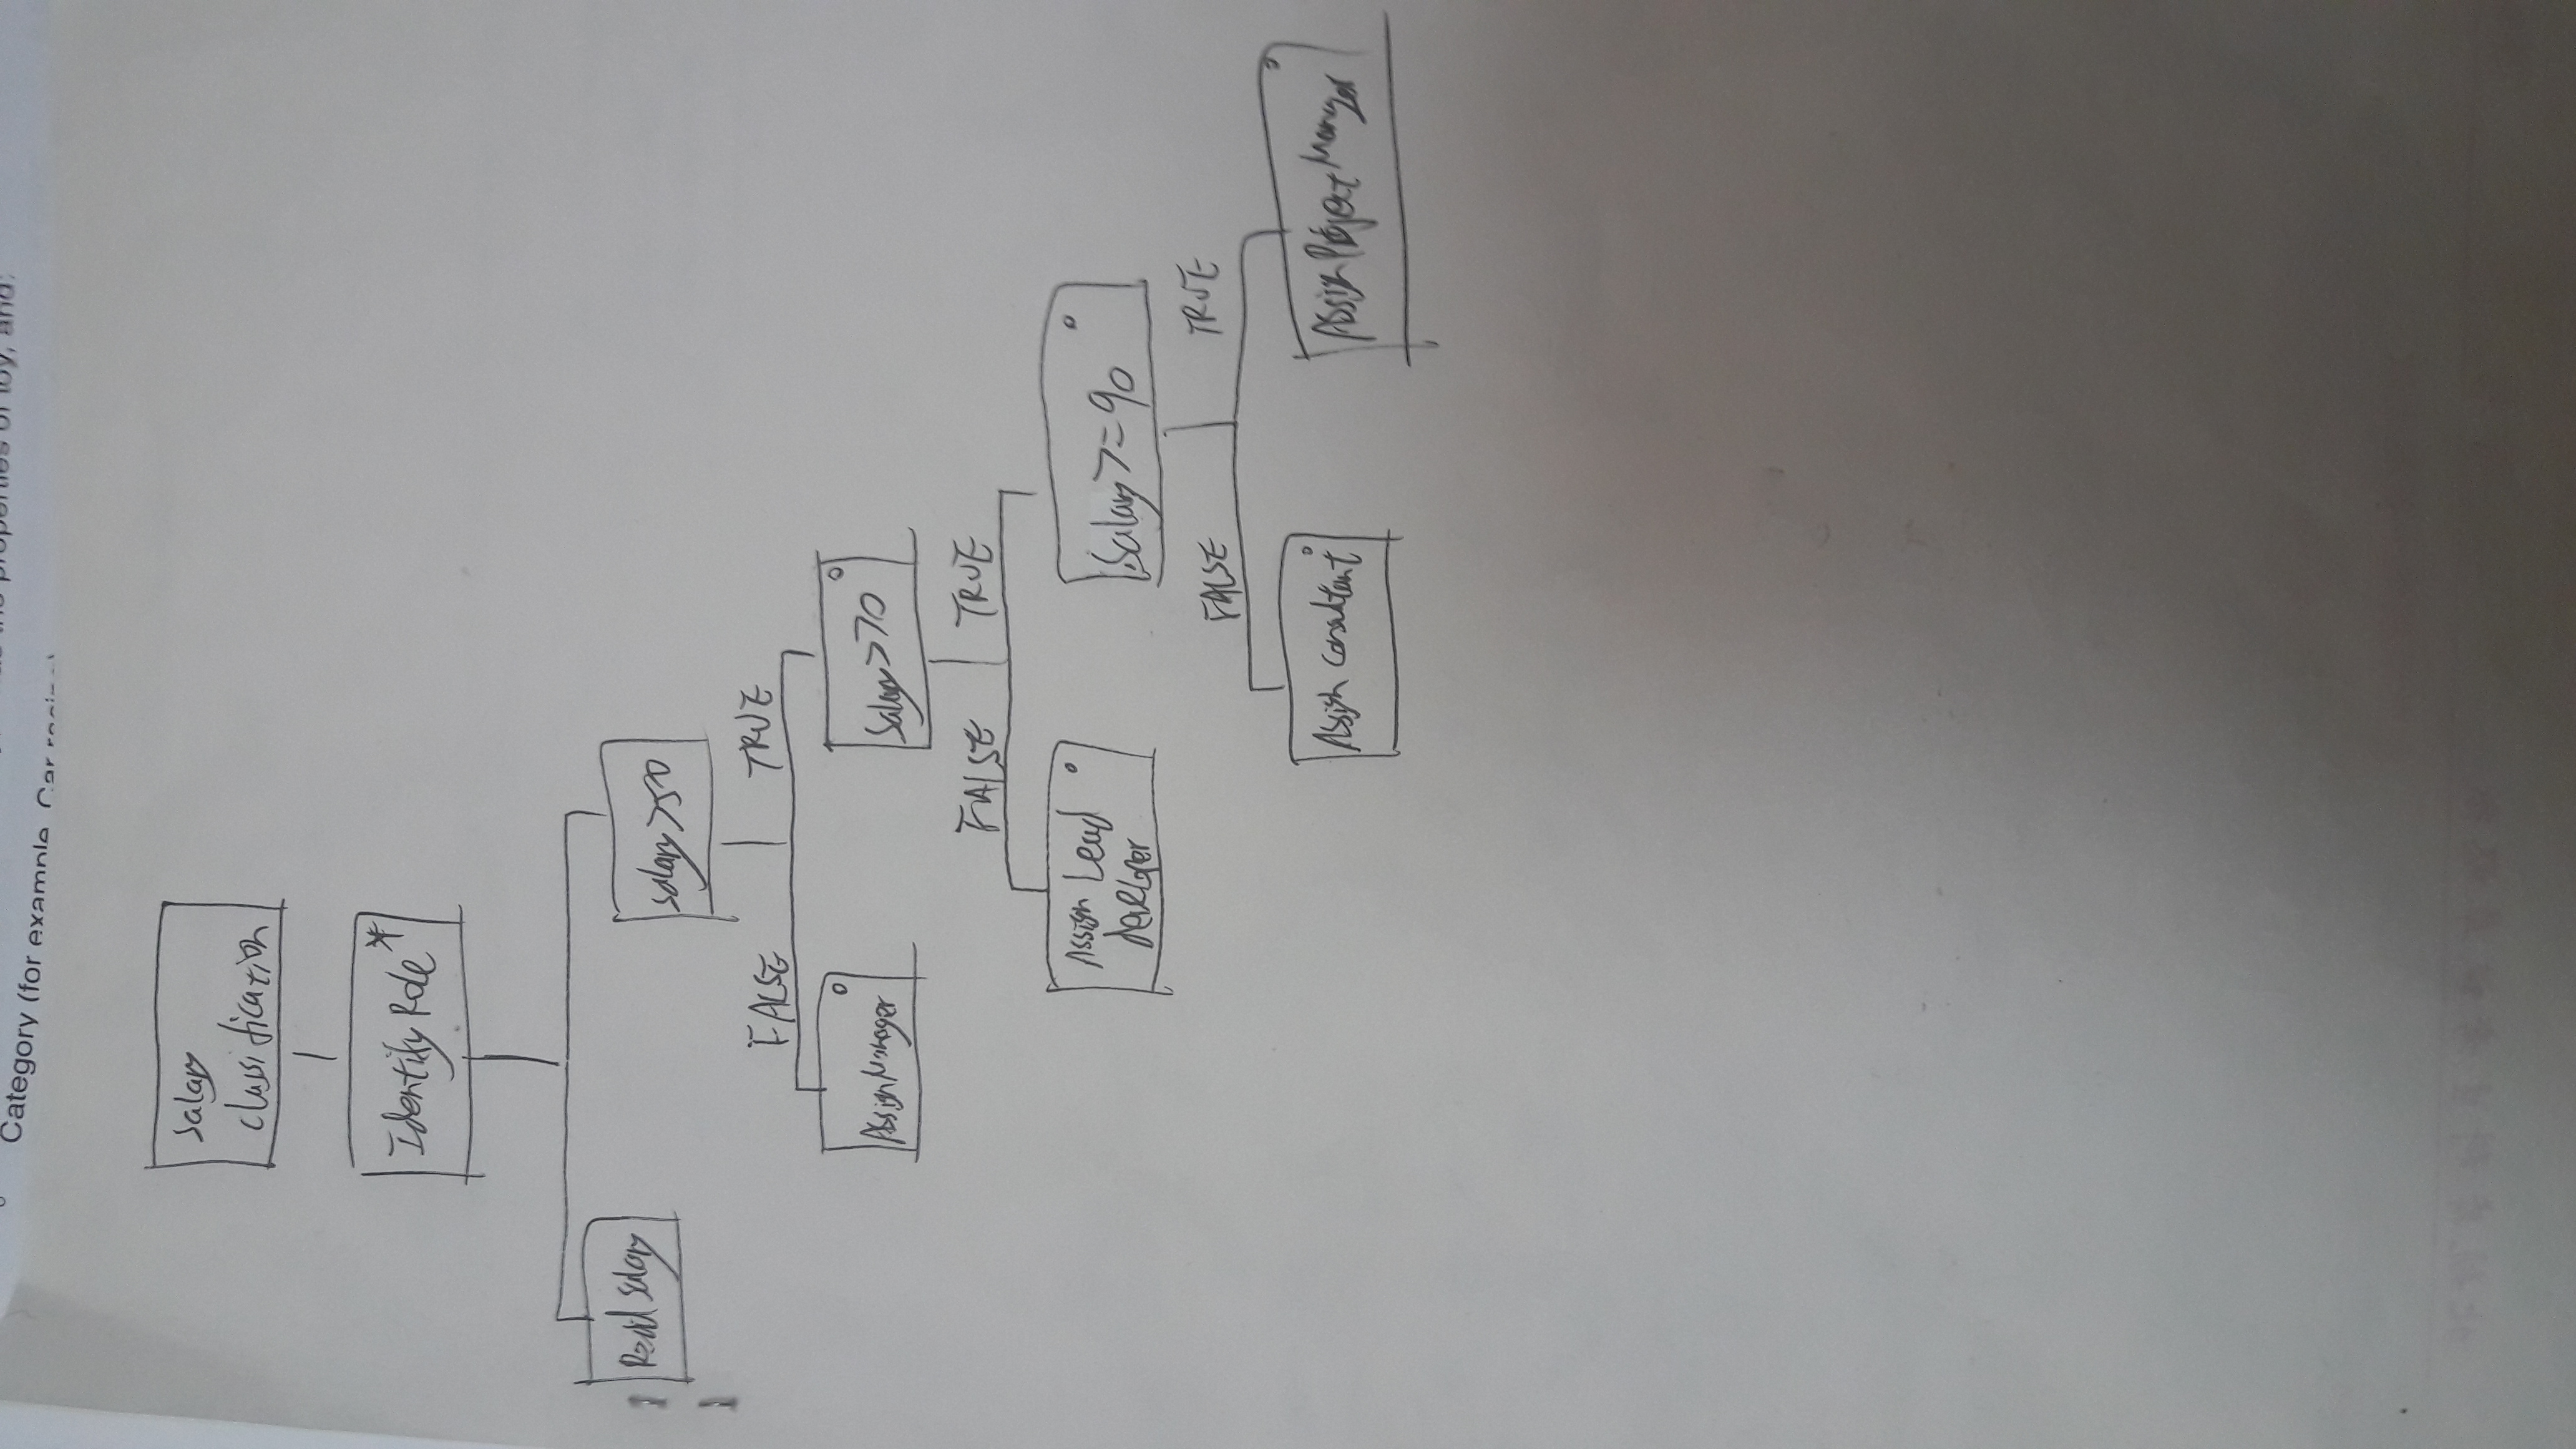 the properties of toy, and:
Category (for example, Car racing)
Salary
classification
Identify Role *
Read Salary
Salary >50
FALSE
TRUE
Assign Manager
Salary >70
FALSE
TRUE
Assign Lead
developer
Salary >= 90
FALSE
TRUE
Assign Consultant
Assign Project Manager